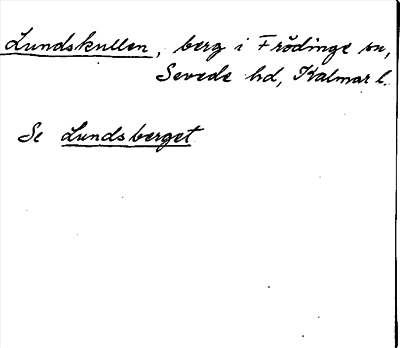 Lundskullen, berg i Frödinge sn,
Sevede hd, Kalmar l.
Se Lundsberget